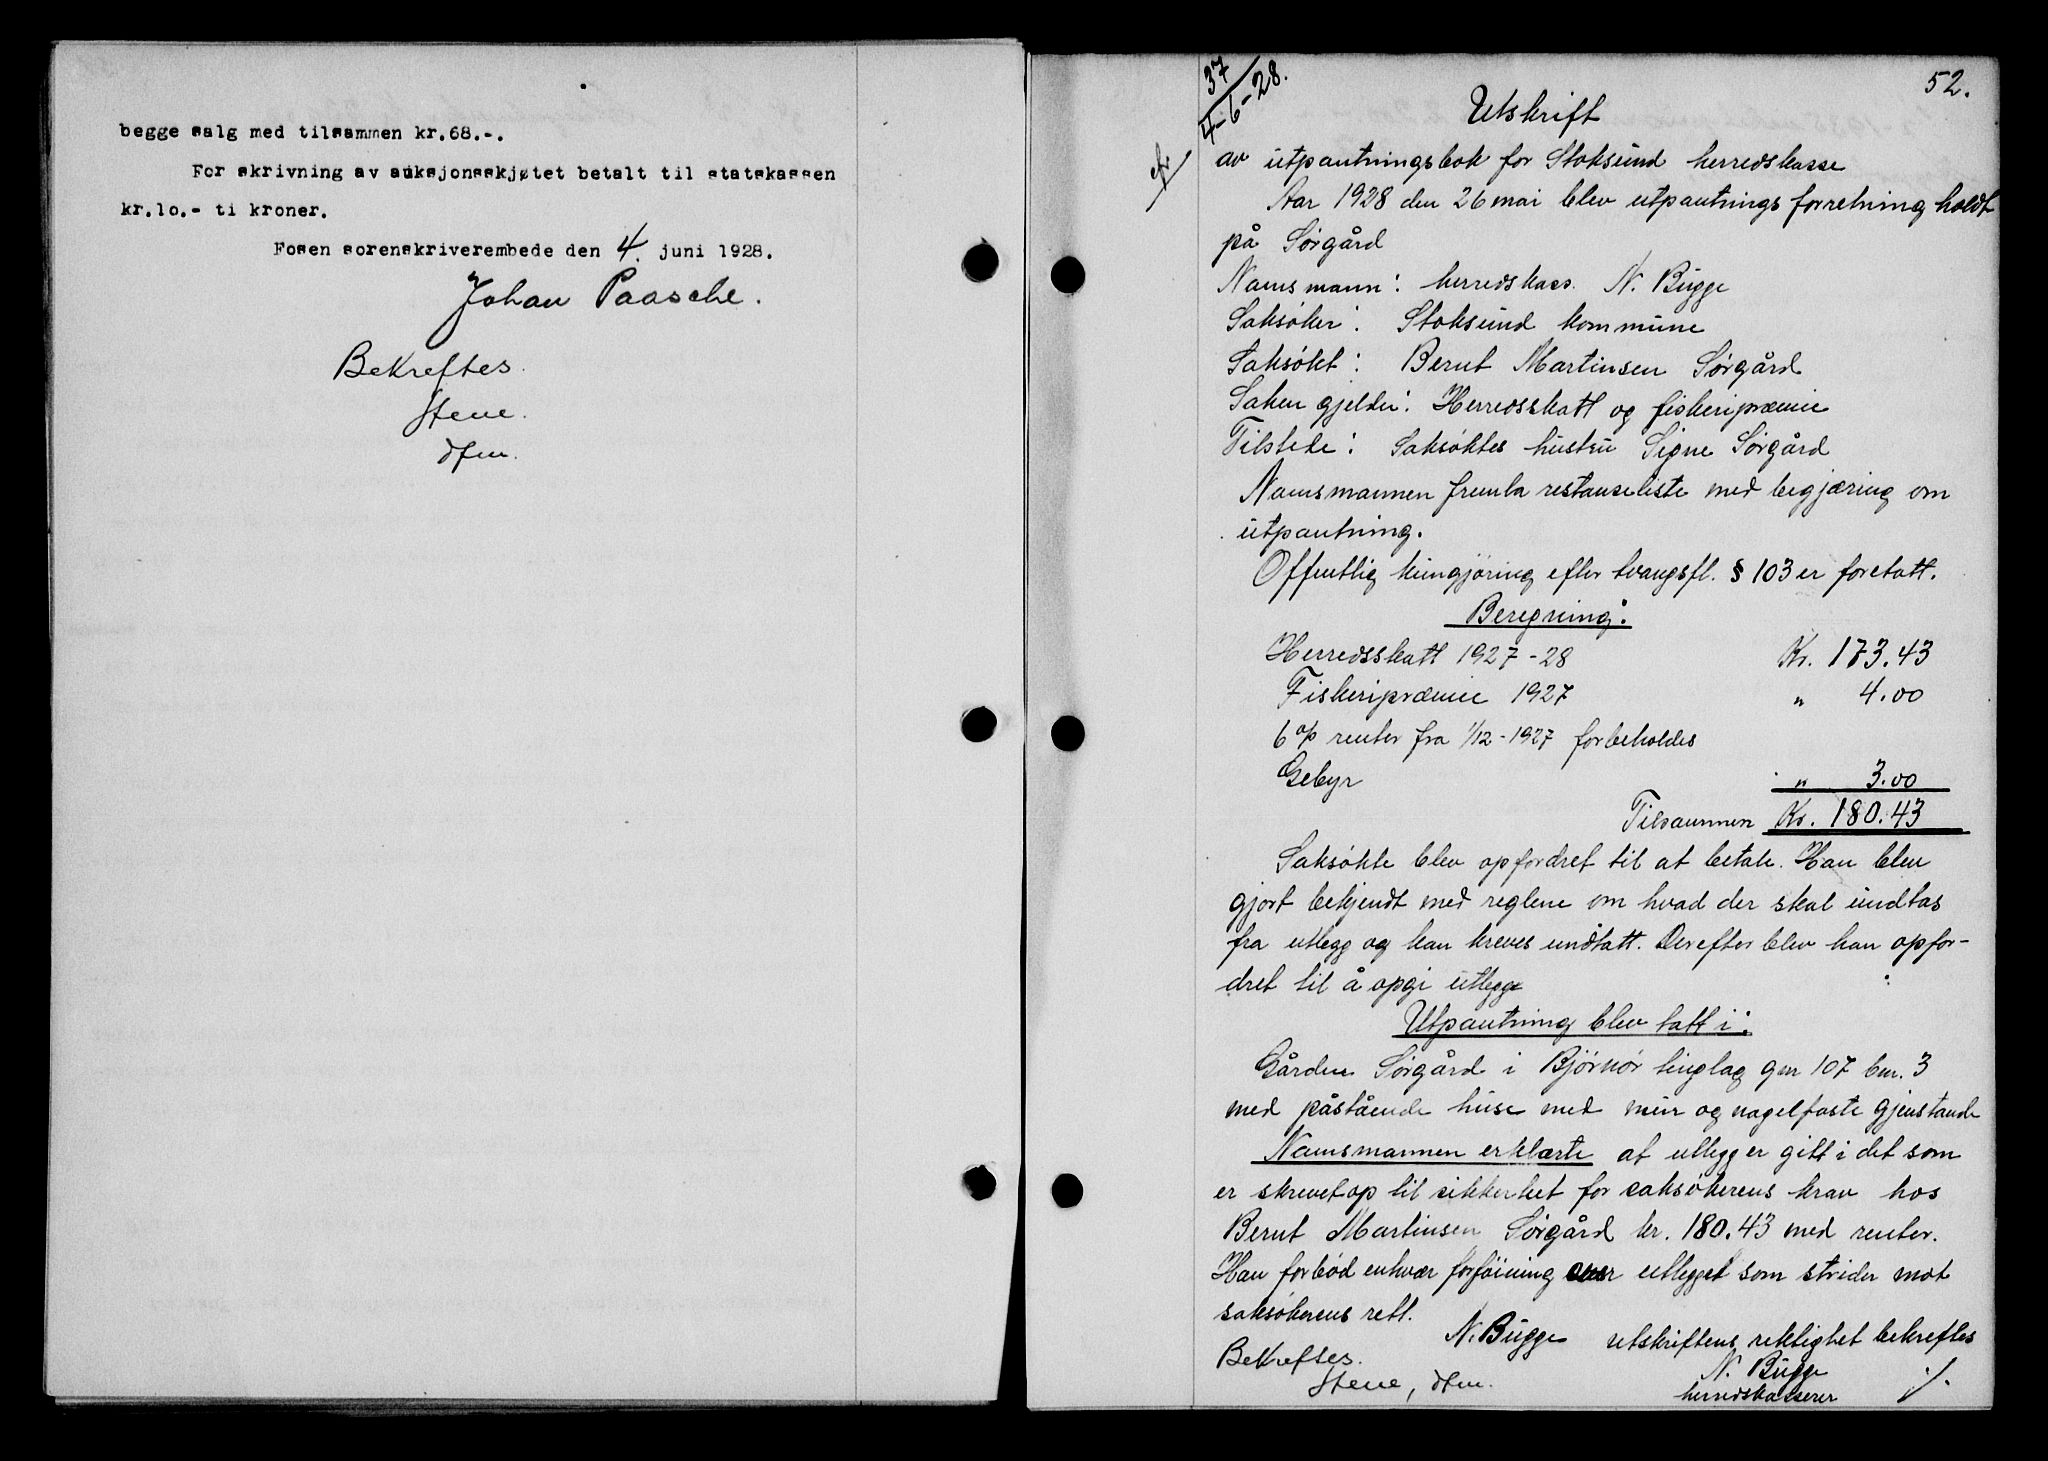 begge salg med tilsammen kr.68.-.
For skrivning av auksjonsskjøtet betalt til statskassen
kr.10.- ti kroner.
Fosen sorenskriverembede den 4. juni 1928.
Johan Paasche.
Bekreftes.
Stene.
dfm.
52.
37
4-6-28.
Utskrift
av utpantningsbok for Stoksund herredskasse
Aar 1928 den 26 mai blev utpantningsforretning holdt
på Sørgård
Namsmann: herredskass. N. Bugge
Saksøker: Stoksund kommune
Saksøkt: Bernt Martinsen Sørgård
Saken gjelder: Herredsskatt og fiskeripræmie
Tilstede: Saksøktes hustru Signe Sørgård
Namsmannen fremla restanseliste med begjæring om
utpantning.
Offentlig kungjøring efter tvangsfl. § 103 er foretatt.
Beregning:
Herredsskatt 1927-28 Kr. 173.43
Fiskeripræmie 1927 " 4.00
6 % renter fra 1/12-1927 forbeholdes
Gebyr " 3.00
Tilsammen Kr. 180.43
Saksøkte blev opfordret til at betale. Han blev
gjort bekjendt med reglene om hvad der skal undtas
fra utlegg og kan kreves undtatt. Derefter blev han opfor-
dret til å opgi utlegg
Utpantning blev tatt i:
Gården Sørgård i Bjørnør tinglag gnr 107 bnr. 3
med påstående huse med mur og nagelfaste gjenstande
Namsmannen erklærte at utlegg er gitt i det som
er skrevet op til sikkerhet for saksøkerens krav hos
Bernt Martinsen Sørgård kr. 180.43 med renter.
Han forbød enhvær forføining over utlegget som strider mot
saksøkerens rett.
N. Bugge Utskriftens riktighet bekreftes
Bekreftes. N. Bugge
Stene, dfm. herredskasserer ./.